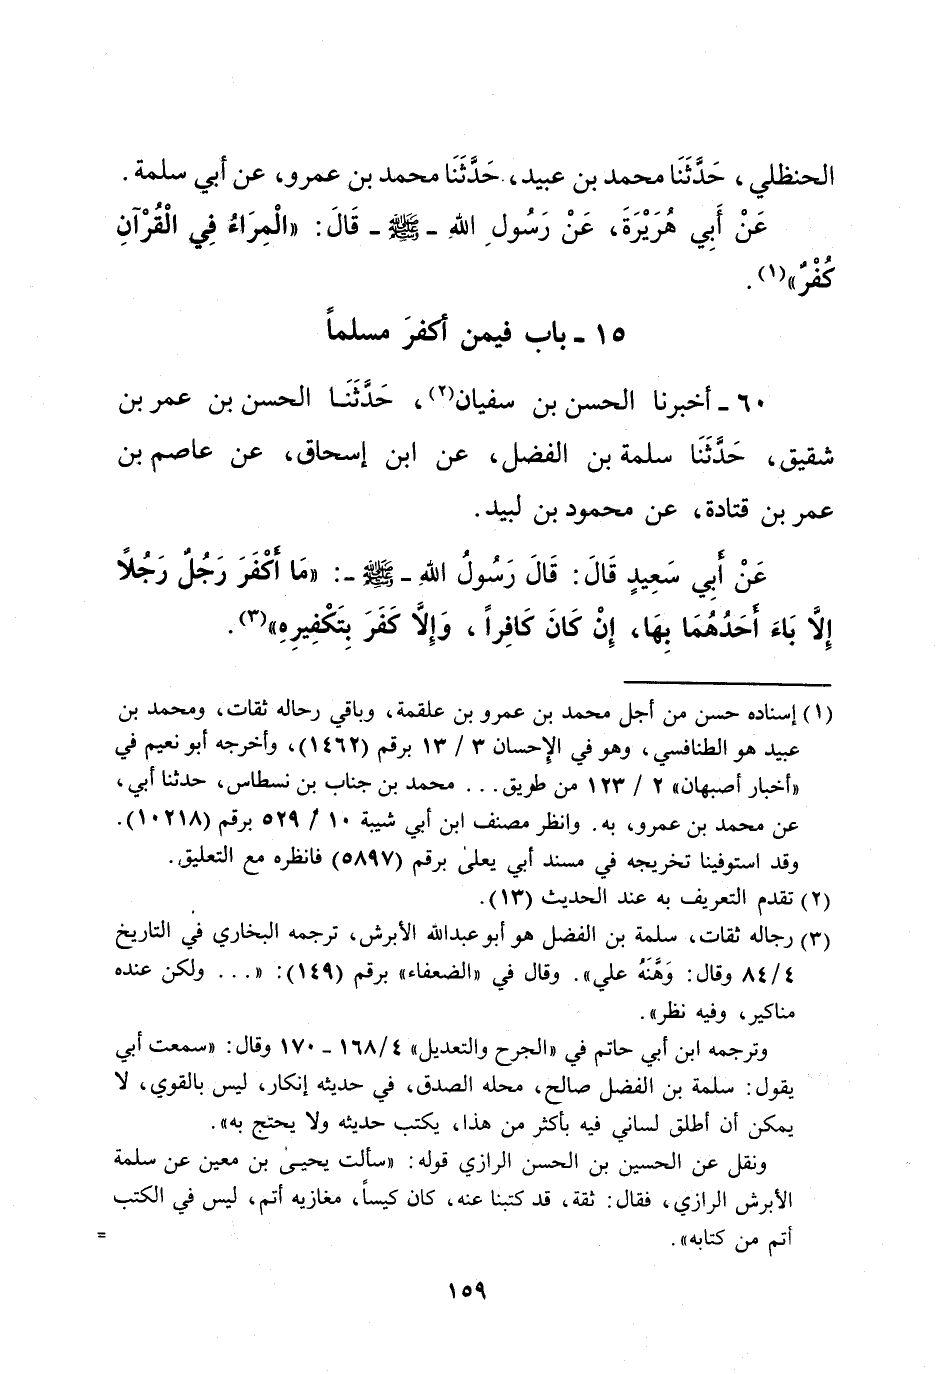 الحنظلي، حَدَّثَنَا محمد بن عبيد، حَدَّثَنَا محمد بن عمرو، عن أبي سلمة.
عَنْ أَبِي هُرَيْرَةَ، عَنْ رَسُولِ اللهِ - ﷺ - قَالَ: «الْمِرَاءُ فِي الْقُرْآنِ
كُفْرٌ»(١).
١٥ - باب فيمن أكفرَ مسلماً
٦٠ - أخبرنا الحسن بن سفيان(٢)، حَدَّثَنَا الحسن بن عمر بن
شقيق، حَدَّثَنَا سلمة بن الفضل، عن ابن إسحاق، عن عاصم بن
عمر بن قتادة، عن محمود بن لبيد.
عَنْ أَبِي سَعِيدٍ قَالَ: قَالَ رَسُولُ اللهِ - ﷺ -: «مَا أَكْفَرَ رَجُلٌ رَجُلًا
إِلَّا بَاءَ أَحَدُهُمَا بِهَا، إِنْ كَانَ كَافِراً، وَإِلَّا كَفَرَ بِتَكْفِيرِهِ»(٣).
(١) إسناده حسن من أجل محمد بن عمرو بن علقمة، وباقي رجاله ثقات، ومحمد بن
عبيد هو الطنافسي، وهو في الإحسان ٣ / ١٣ برقم (١٤٦٢)، وأخرجه أبو نعيم في
«أخبار أصبهان» ٢ / ١٢٣ من طريق... محمد بن جناب بن نسطاس، حدثنا أبي،
عن محمد بن عمرو، به. وانظر مصنف ابن أبي شيبة ١٠ / ٥٢٩ برقم (١٠٢١٨).
وقد استوفينا تخريجه في مسند أبي يعلىٰ برقم (٥٨٩٧) فانظره مع التعليق.
(٢) تقدم التعريف به عند الحديث (١٣).
(٣) رجاله ثقات، سلمة بن الفضل هو أبو عبدالله الأبرش، ترجمه البخاري في التاريخ
٨٤/٤ وقال: وَهَّنَهُ علي». وقال في «الضعفاء» برقم (١٤٩): «... ولكن عنده
مناكير، وفيه نظر».
وترجمه ابن أبي حاتم في «الجرح والتعديل» ١٦٨/٤ - ١٧٠ وقال: «سمعت أبي
يقول: سلمة بن الفضل صالح، محله الصدق، في حديثه إنكار، ليس بالقوي، لا
يمكن أن أطلق لساني فيه بأكثر من هذا، يكتب حديثه ولا يحتج به».
ونقل عن الحسين بن الحسن الرازي قوله: «سألت يحيىٰ بن معين عن سلمة
الأبرش الرازي، فقال: ثقة، قد كتبنا عنه، كان كيساً، مغازيه أتم، ليس في الكتب
أتم من كتابه». =
١٥٩